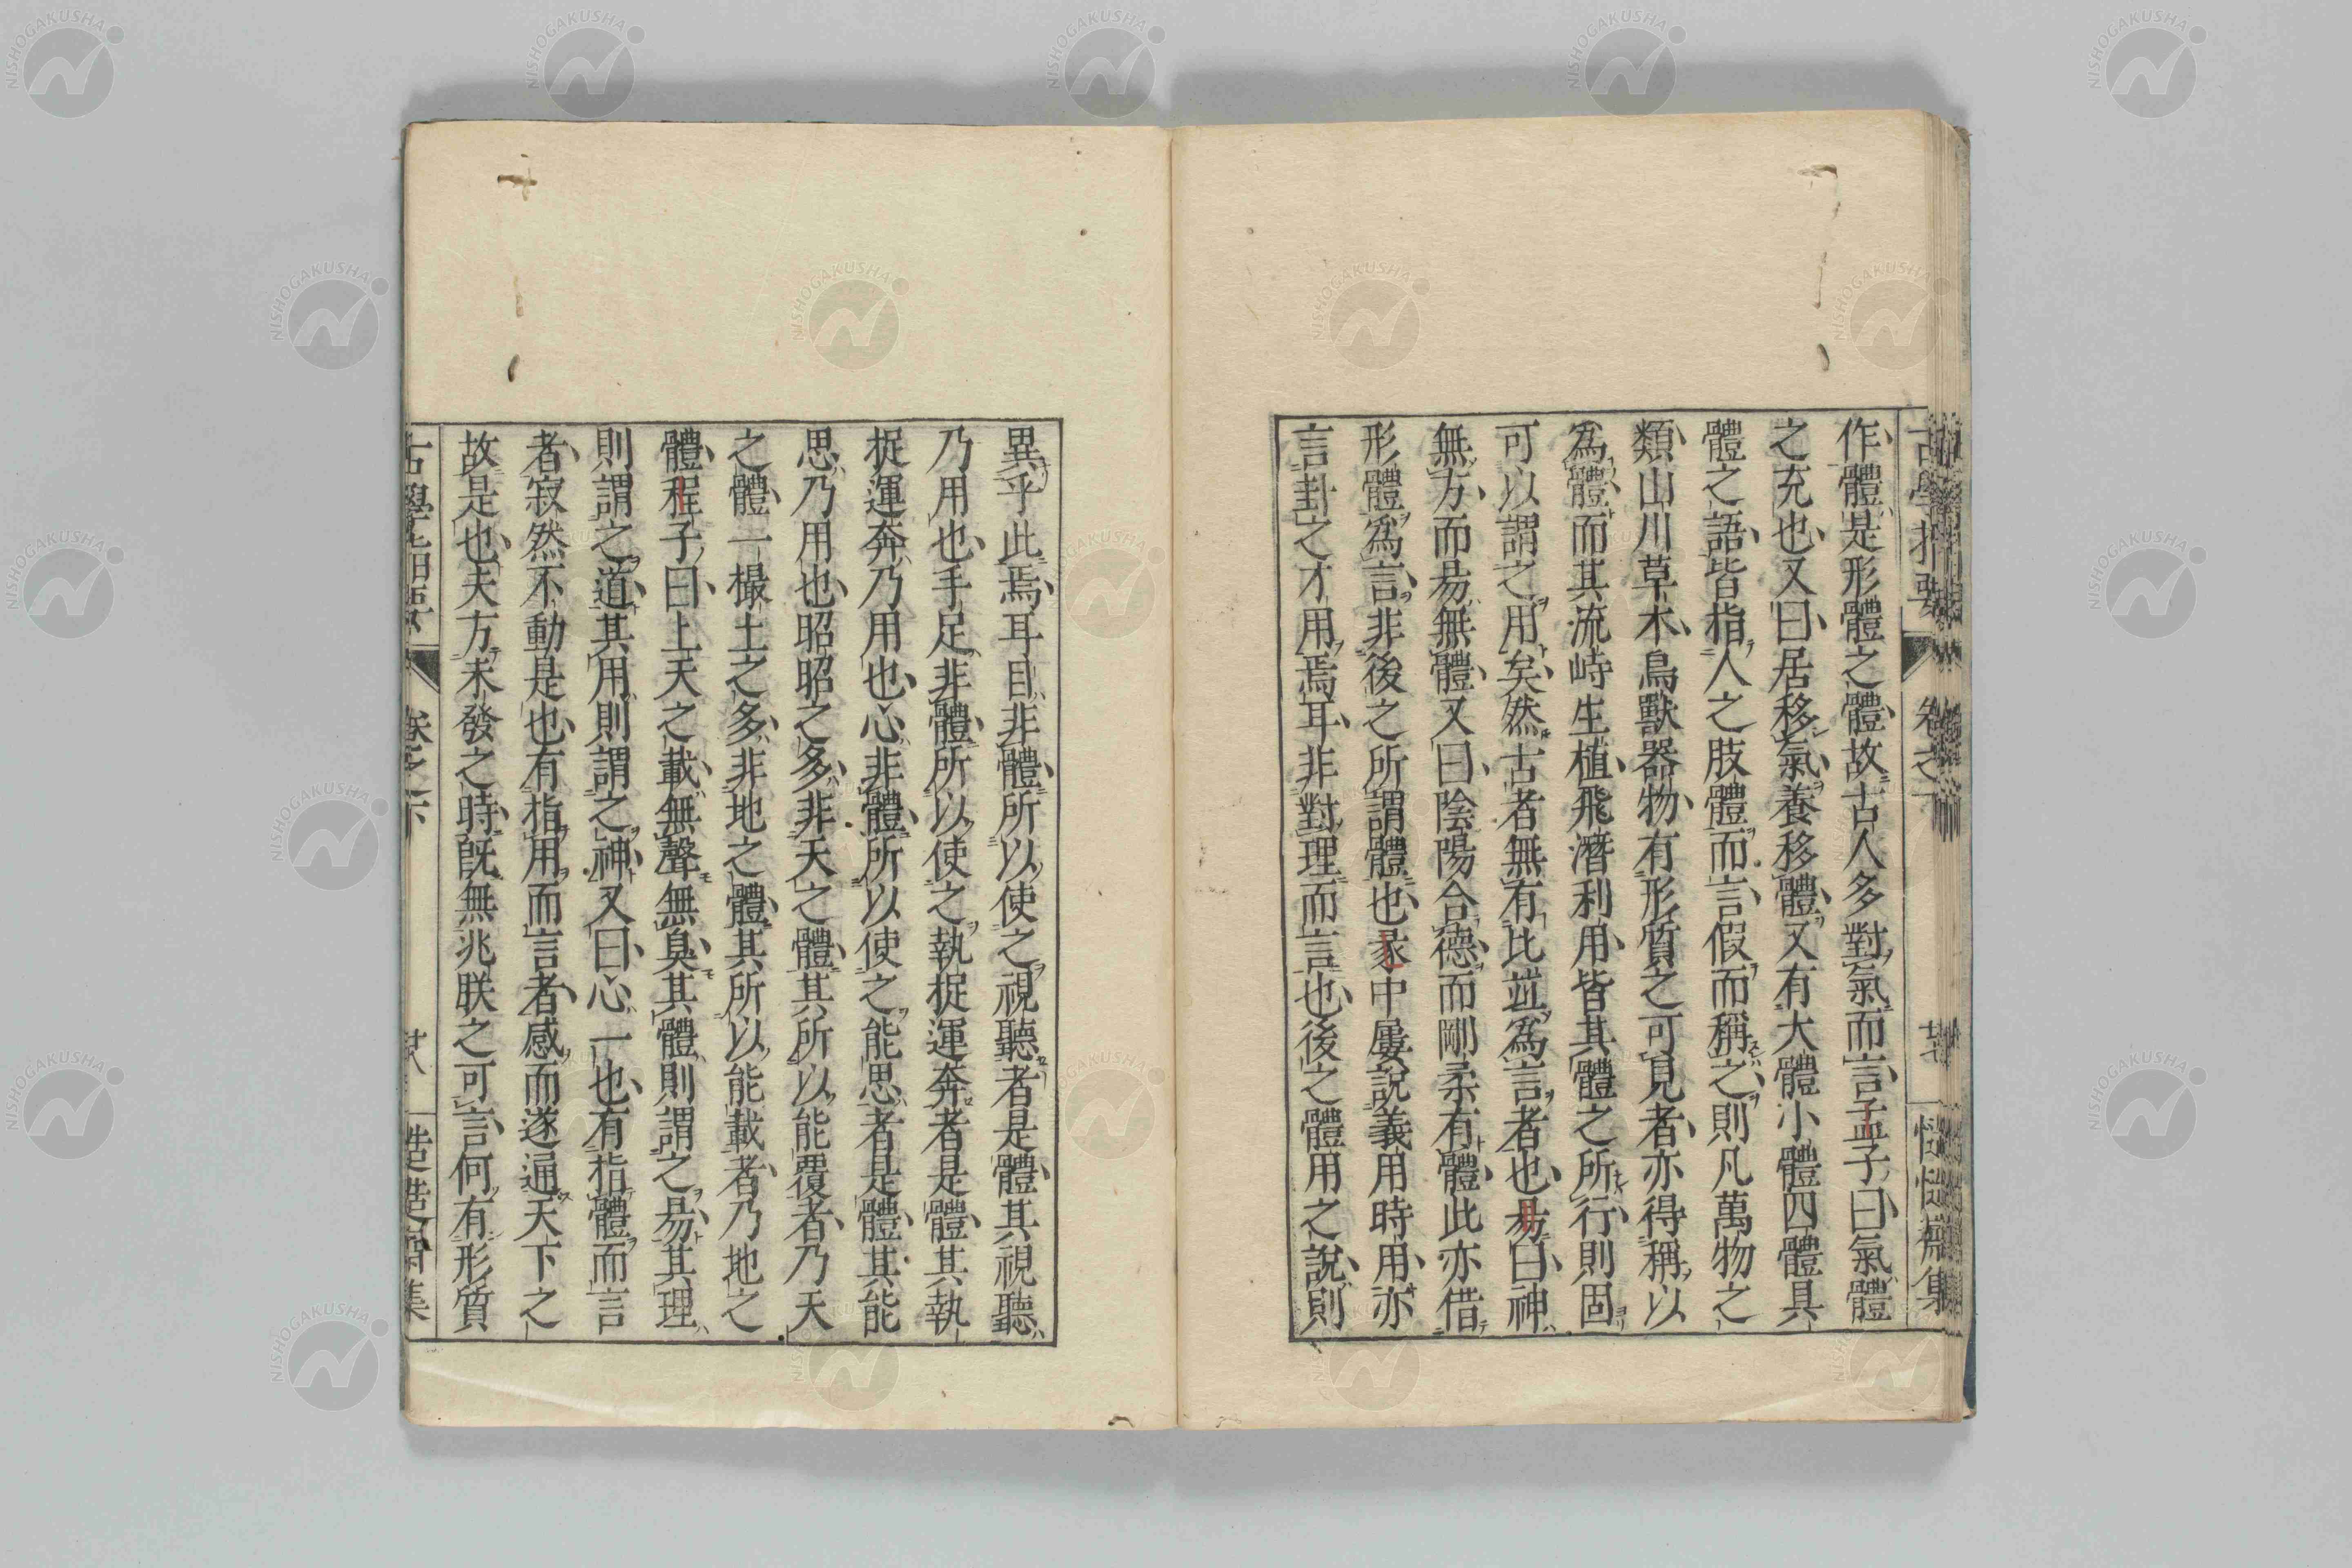 作體是形體之體故古人多對氣而言孟子曰氣體
之充也又曰居移氣養移體又有大體小體四體具
體之語皆指人之肢體而言假而稱之則凡萬物之
類山川草木鳥獸器物有形質之可見者亦得稱以
為體而其流峙生植飛潛利用皆其體之所行則固
可以謂之用矣然古者無有比竝為言者也易曰神
無方而易無體又曰陰陽合德而剛柔有體此亦借
形體為言非後之所謂體也彖中屢說義用時用亦
言卦之才用焉耳非對理而言也後之體用之說則
古學指要
卷之下
異乎此焉耳目非體所以使之視聽者是體其視聽
乃用也手足非體所以使之執捉運奔者是體其執
捉運奔乃用也心非體所以使之能思者是體其能
思乃用也昭昭之多非天之體其所以能覆者乃天
之體一撮土之多非地之體其所以能載者乃地之
體程子曰上天之載無聲無臭其體則謂之易其理
則謂之道其用則謂之神又曰心一也有指體而言
者寂然不動是也有指用而言者感而遂通天下之
故是也夫方未發之時既無兆朕之可言何有形質
古學指要
卷之下
廿八
NISHOGAKUSHA